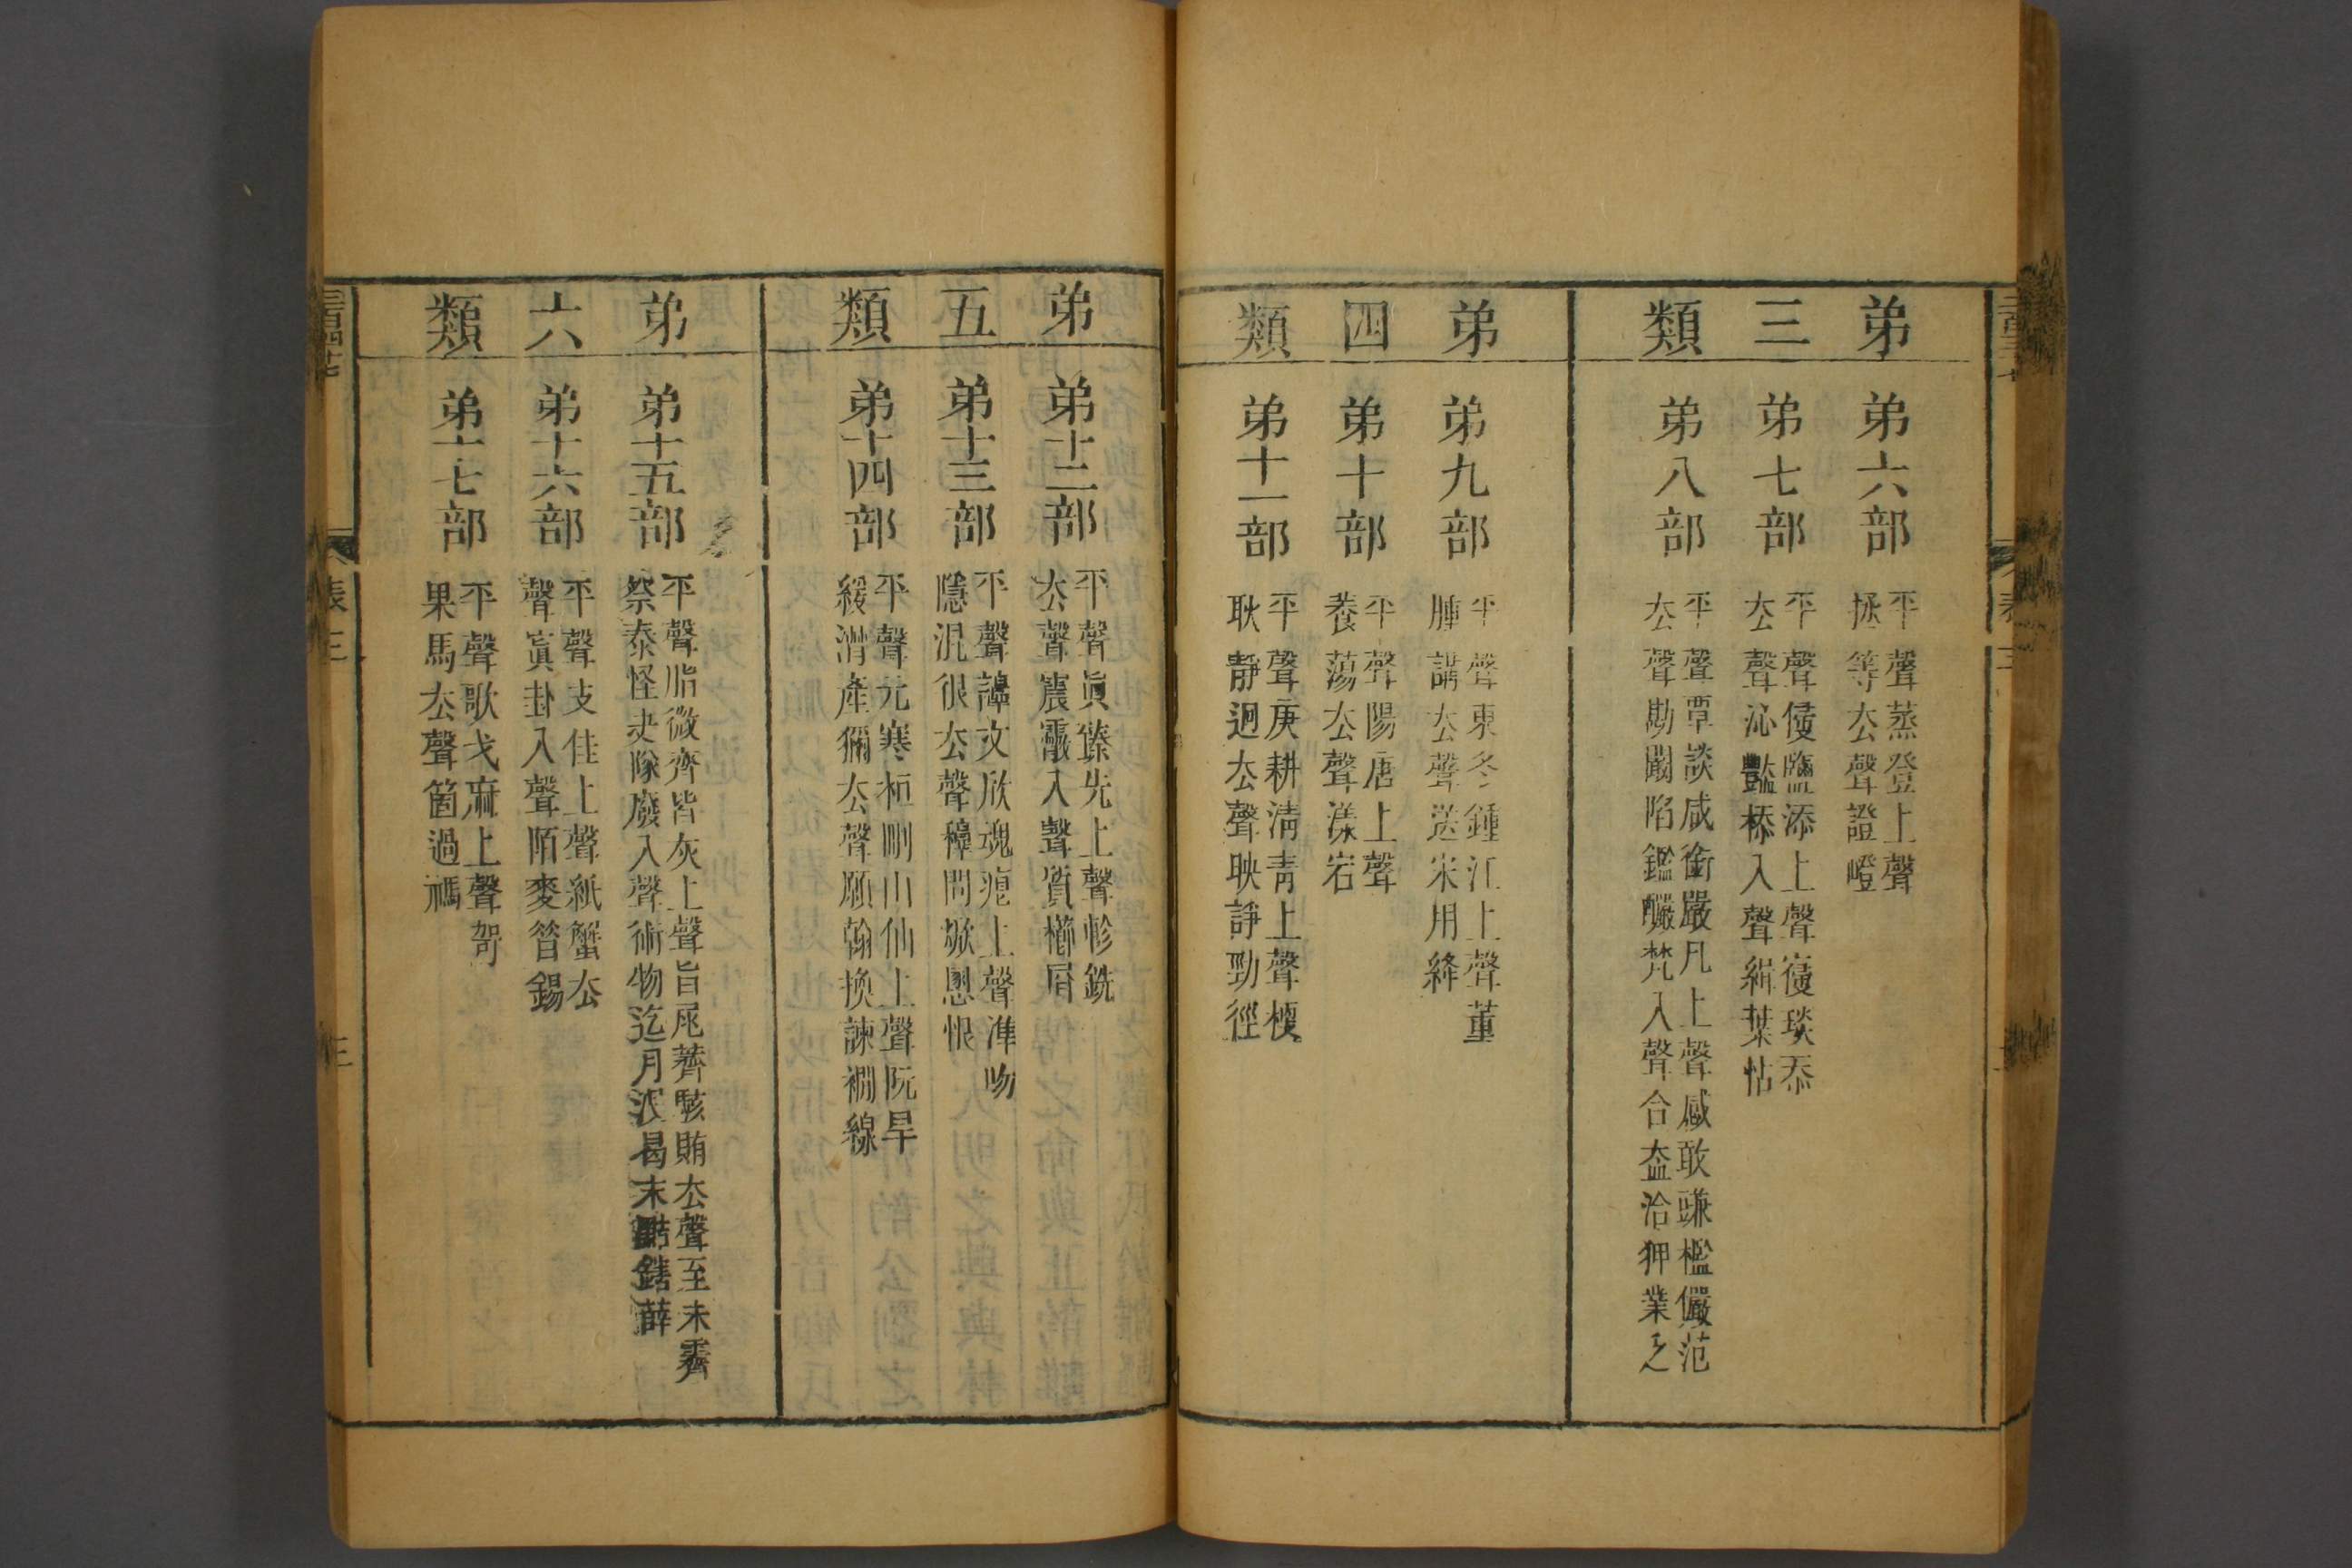 弟三類
弟六部
平聲蒸登上聲
拯等厺聲證嶝
弟七部
平聲侵鹽添上聲寑琰忝
厺聲沁豔㮇入聲緝葉怗
弟八部
平聲覃談咸銜嚴凡上聲感敢豏檻儼范
厺聲勘闞陷鑑釅梵入聲合盍洽狎業乏
弟四類
弟九部
平聲東冬鍾江上聲董
腫講厺聲送宋用絳
弟十部
平聲陽唐上聲
養蕩厺聲漾宕
弟十一部
平聲庚耕淸靑上聲梗
耿靜迥厺聲映諍勁徑
弟五類
弟十二部
平聲眞臻先上聲軫銑
厺聲震霰入聲質櫛屑
弟十三部
平聲諄文欣魂痕上聲準吻
隱混很厺聲稕問焮慁恨
弟十四部
平聲元寒桓刪山仙上聲阮旱
緩潸產獮厺聲願翰換諫襉線
弟六類
弟十五部
平聲脂微齊皆灰上聲旨尾薺駭賄厺聲至未霽
祭泰怪夬隊廢入聲術物迄月沒曷末黠鎋薛
弟十六部
平聲支佳上聲紙蟹厺
聲寘卦入聲陌麥昔錫
弟十七部
平聲歌戈麻上聲哿
果馬厺聲箇過禡
表三
三